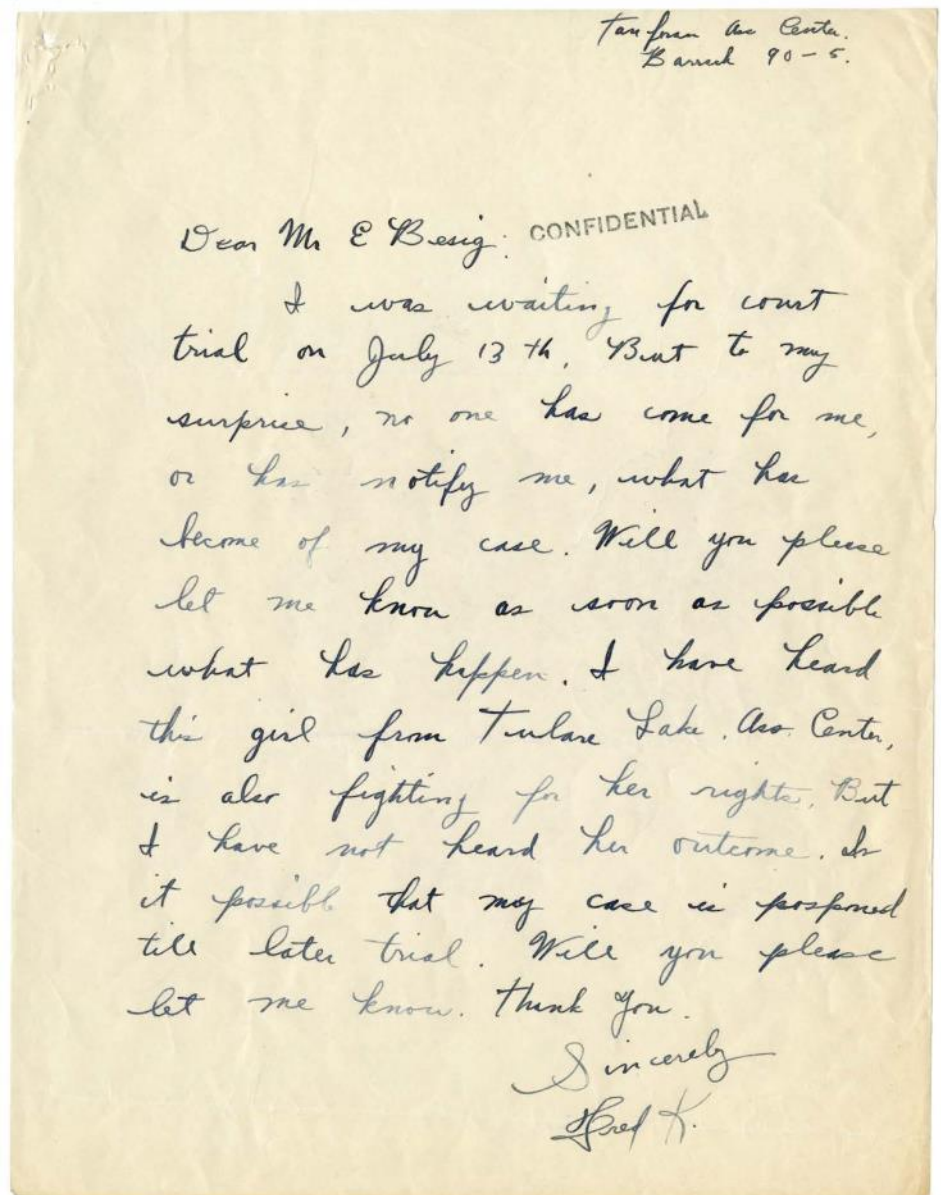 Tanforan Ass Center.
Barrack 90-5.
Dear Mr E Besig: CONFIDENTIAL
I was waiting for court
trial on July 13th. But to my
surprise, no one has come for me,
or has notify me, what has
become of my case. Will you please
let me know as soon as possible
what has happen. I have heard
this girl from Tulare Lake. Ass. Center,
is also fighting for her rights. But
I have not heard her outcome. Is
it possible that my case is posponed
till later trial. Will you please
let me know. Thank You.
Sincerely
Fred K.